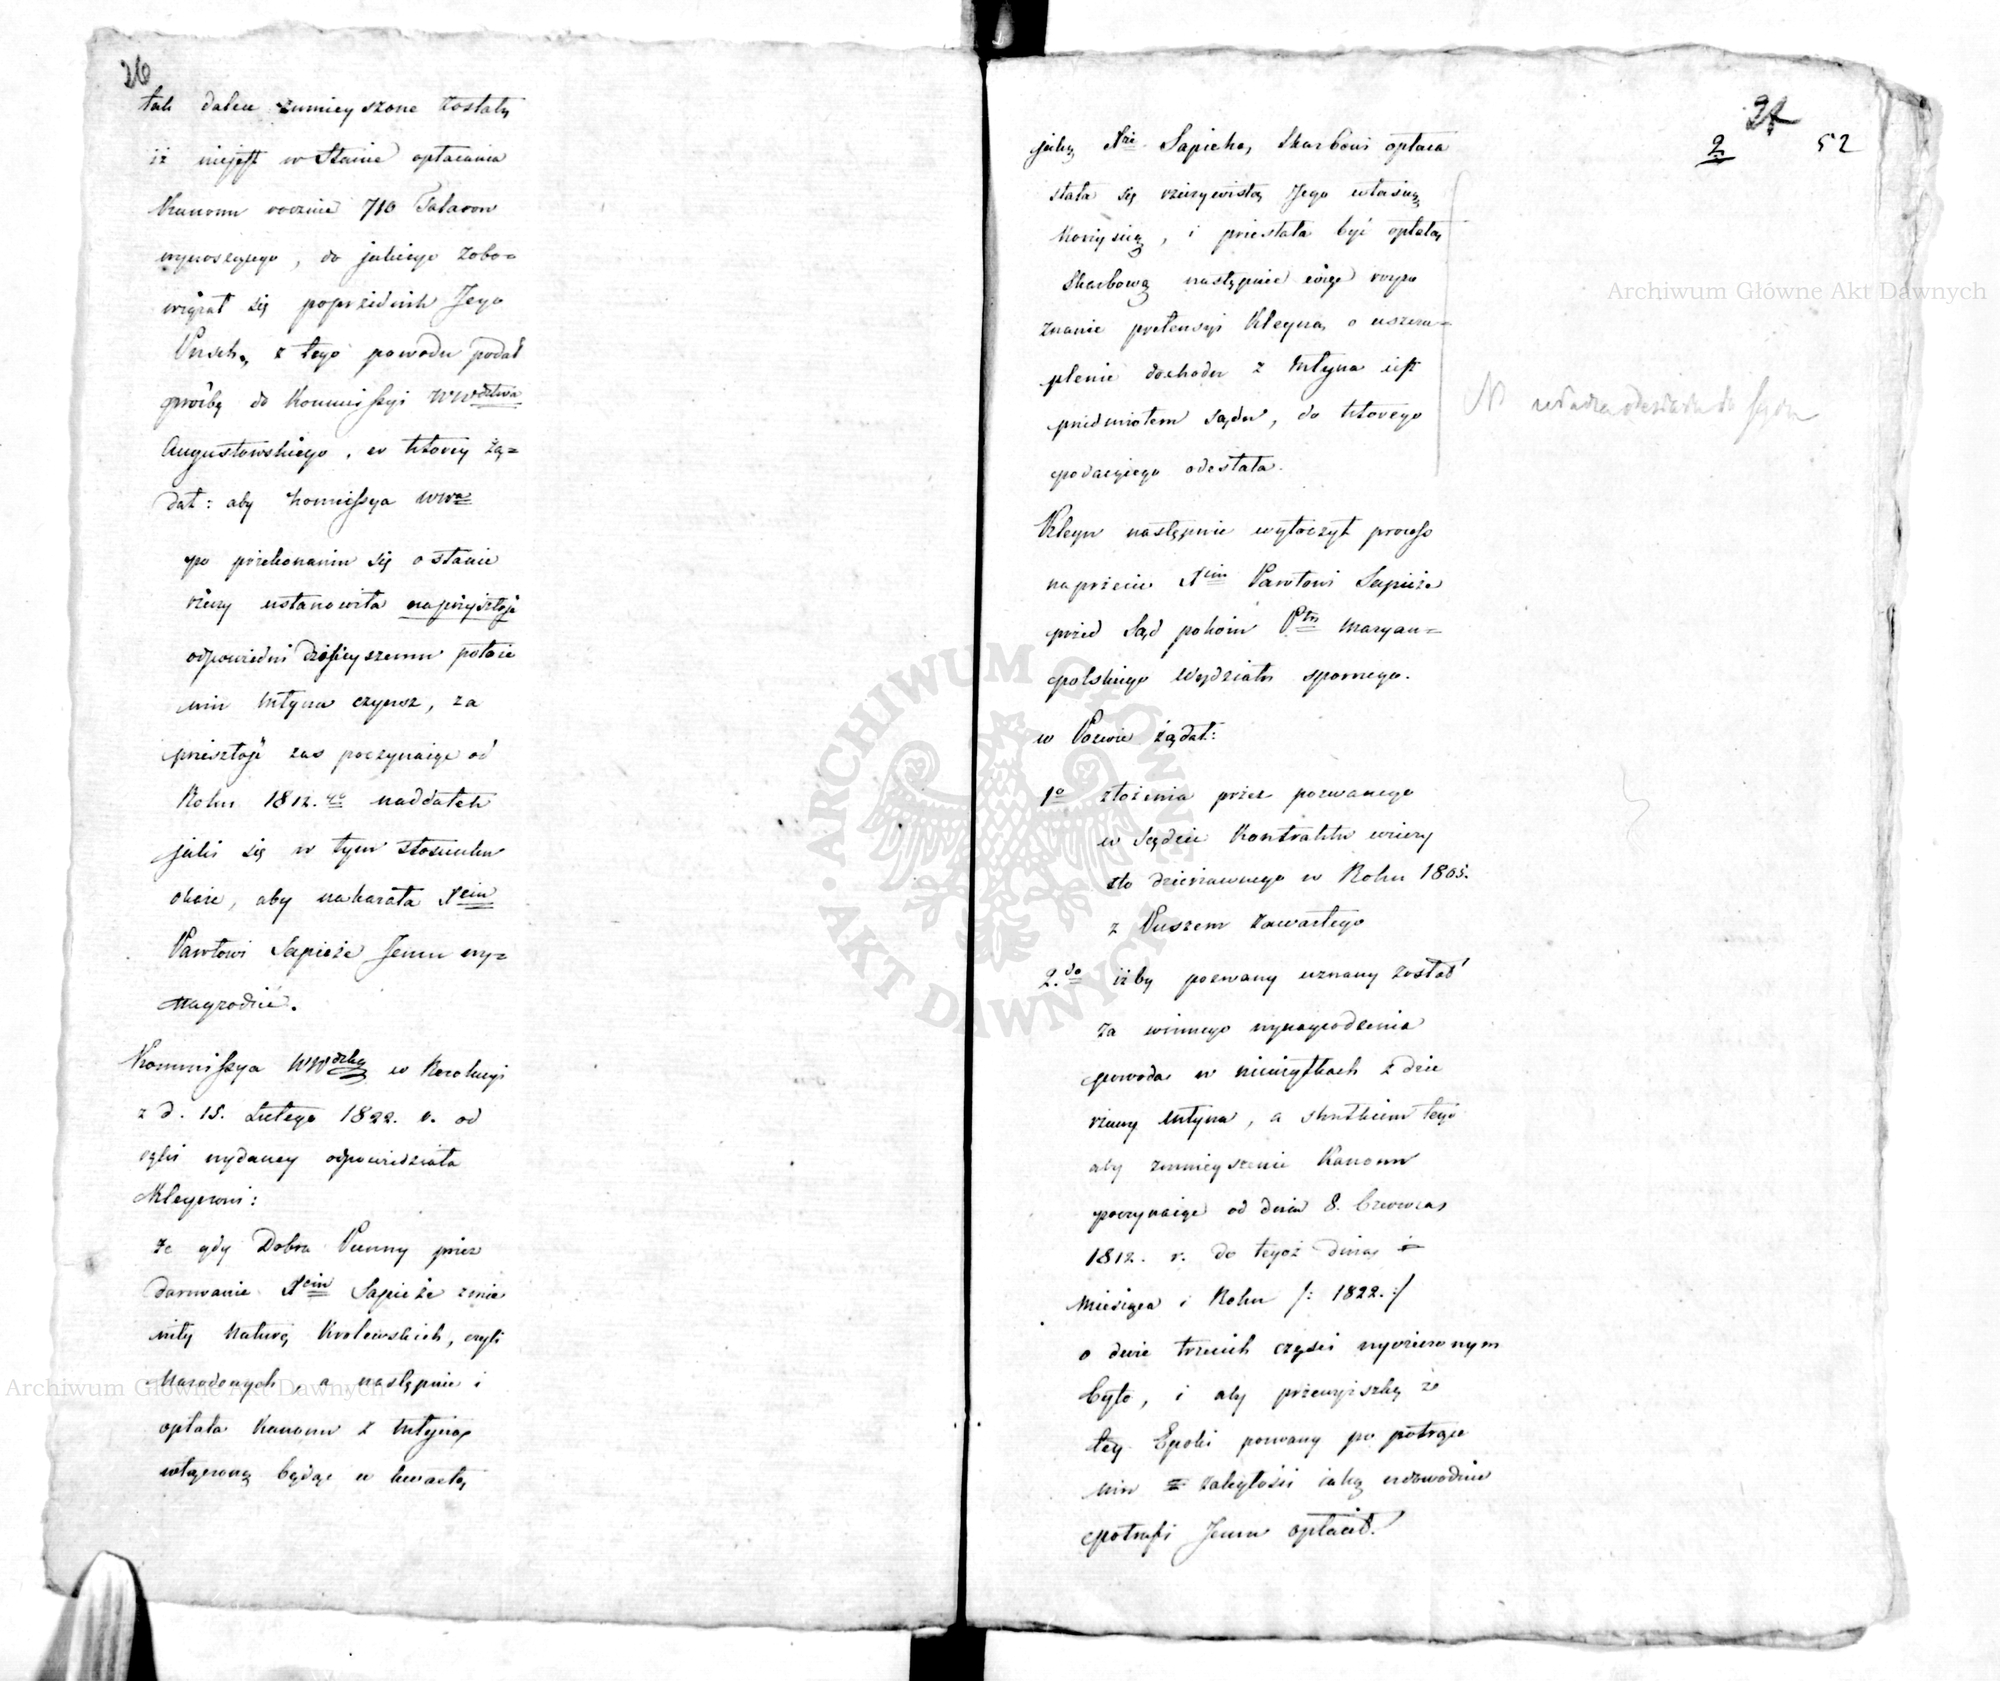 26
tak dalece zmnieyszone zostały
iż niejest w Stanie opłacania
Kanonu rocznie 710 Talarow
wynoszącego, do jakiego zobo=
wiązał się poprzednik Jego
Pusch, z tego powodu podał
prośbę do Kommissyi WWdztwa
Augustowskiego, w ktorey żą=
dał: aby Kommissya WWa
po przekonaniu się o stanie
rzeczy ustanowiła naprzyszłość
odpowiedni dzisieyszemu położe
niu Młyna czynsz, za
przeszłość zas poczynaiąc od
Roku 1812.go naddatek
jaki się w tym stosunku
okaże, aby nakazała Xciu
Pawłowi Sapieże Jemu wy=
nagrodzić.
Kommissya WWdzka w Rezolucyi
z d. 15. Lutego 1822. r. od
wydaney odpowiedziała
Kleynowi:
że gdy Dobra Punny przez
darowanie Xciu Sapieże zmie
niły Naturę Krolewskich, czyli
Narodowych, a następnie i
opłata Kanonu z Młyna
włączoną będąc w kwartę
27
2 52
jaką Xże Sapieha, Skarbowi opłaca
stała się rzeczywistą Jego własną
Korzyścią, i przestała być opłatą
Skarbową następnie więc rozpo
znanie pretensyi Kleyna, o uszczu=
plenie dochodu z Młyna iest
przedmiotem Sądu, do ktorego
podaiącego odesłała.
N
Kleyn następnie wytoczył process
naprzeciw Xciu Pawłowi Sapieże
przed Sąd pokoiu Ptu Maryam=
polskiego Wydziału spornego.
w Pozwie żądał:
1o złożenia przez pozwanego
w Sądzie Kontraktu wieczy
sto dzierżawnego w Roku 1805.
z Puszem zawartego
2.do iżby pozwany uznany został
za winnego wynagrodzenia
powoda w nieużytkach z dzie
rżawy Młyna, a skutkiem tego
aby zmnieyszenie Kanonu
poczynaiąc od dnia 8. Czerwca
1812. r. do tegoż dnia i
Miesiąca i Roku /: 1822. :/
o dwie trzecich części wyrzeczonym
było, i aby przewyżkę z
tey Epoki pozwany po potrące
niu zaległości iaką udowodnić
potrafi Jemu opłacił.
Archiwum Główne Akt Dawnych
Archiwum Główne Akt Dawnych
ARCHIWUM GŁÓWNE AKT DAWNYCH